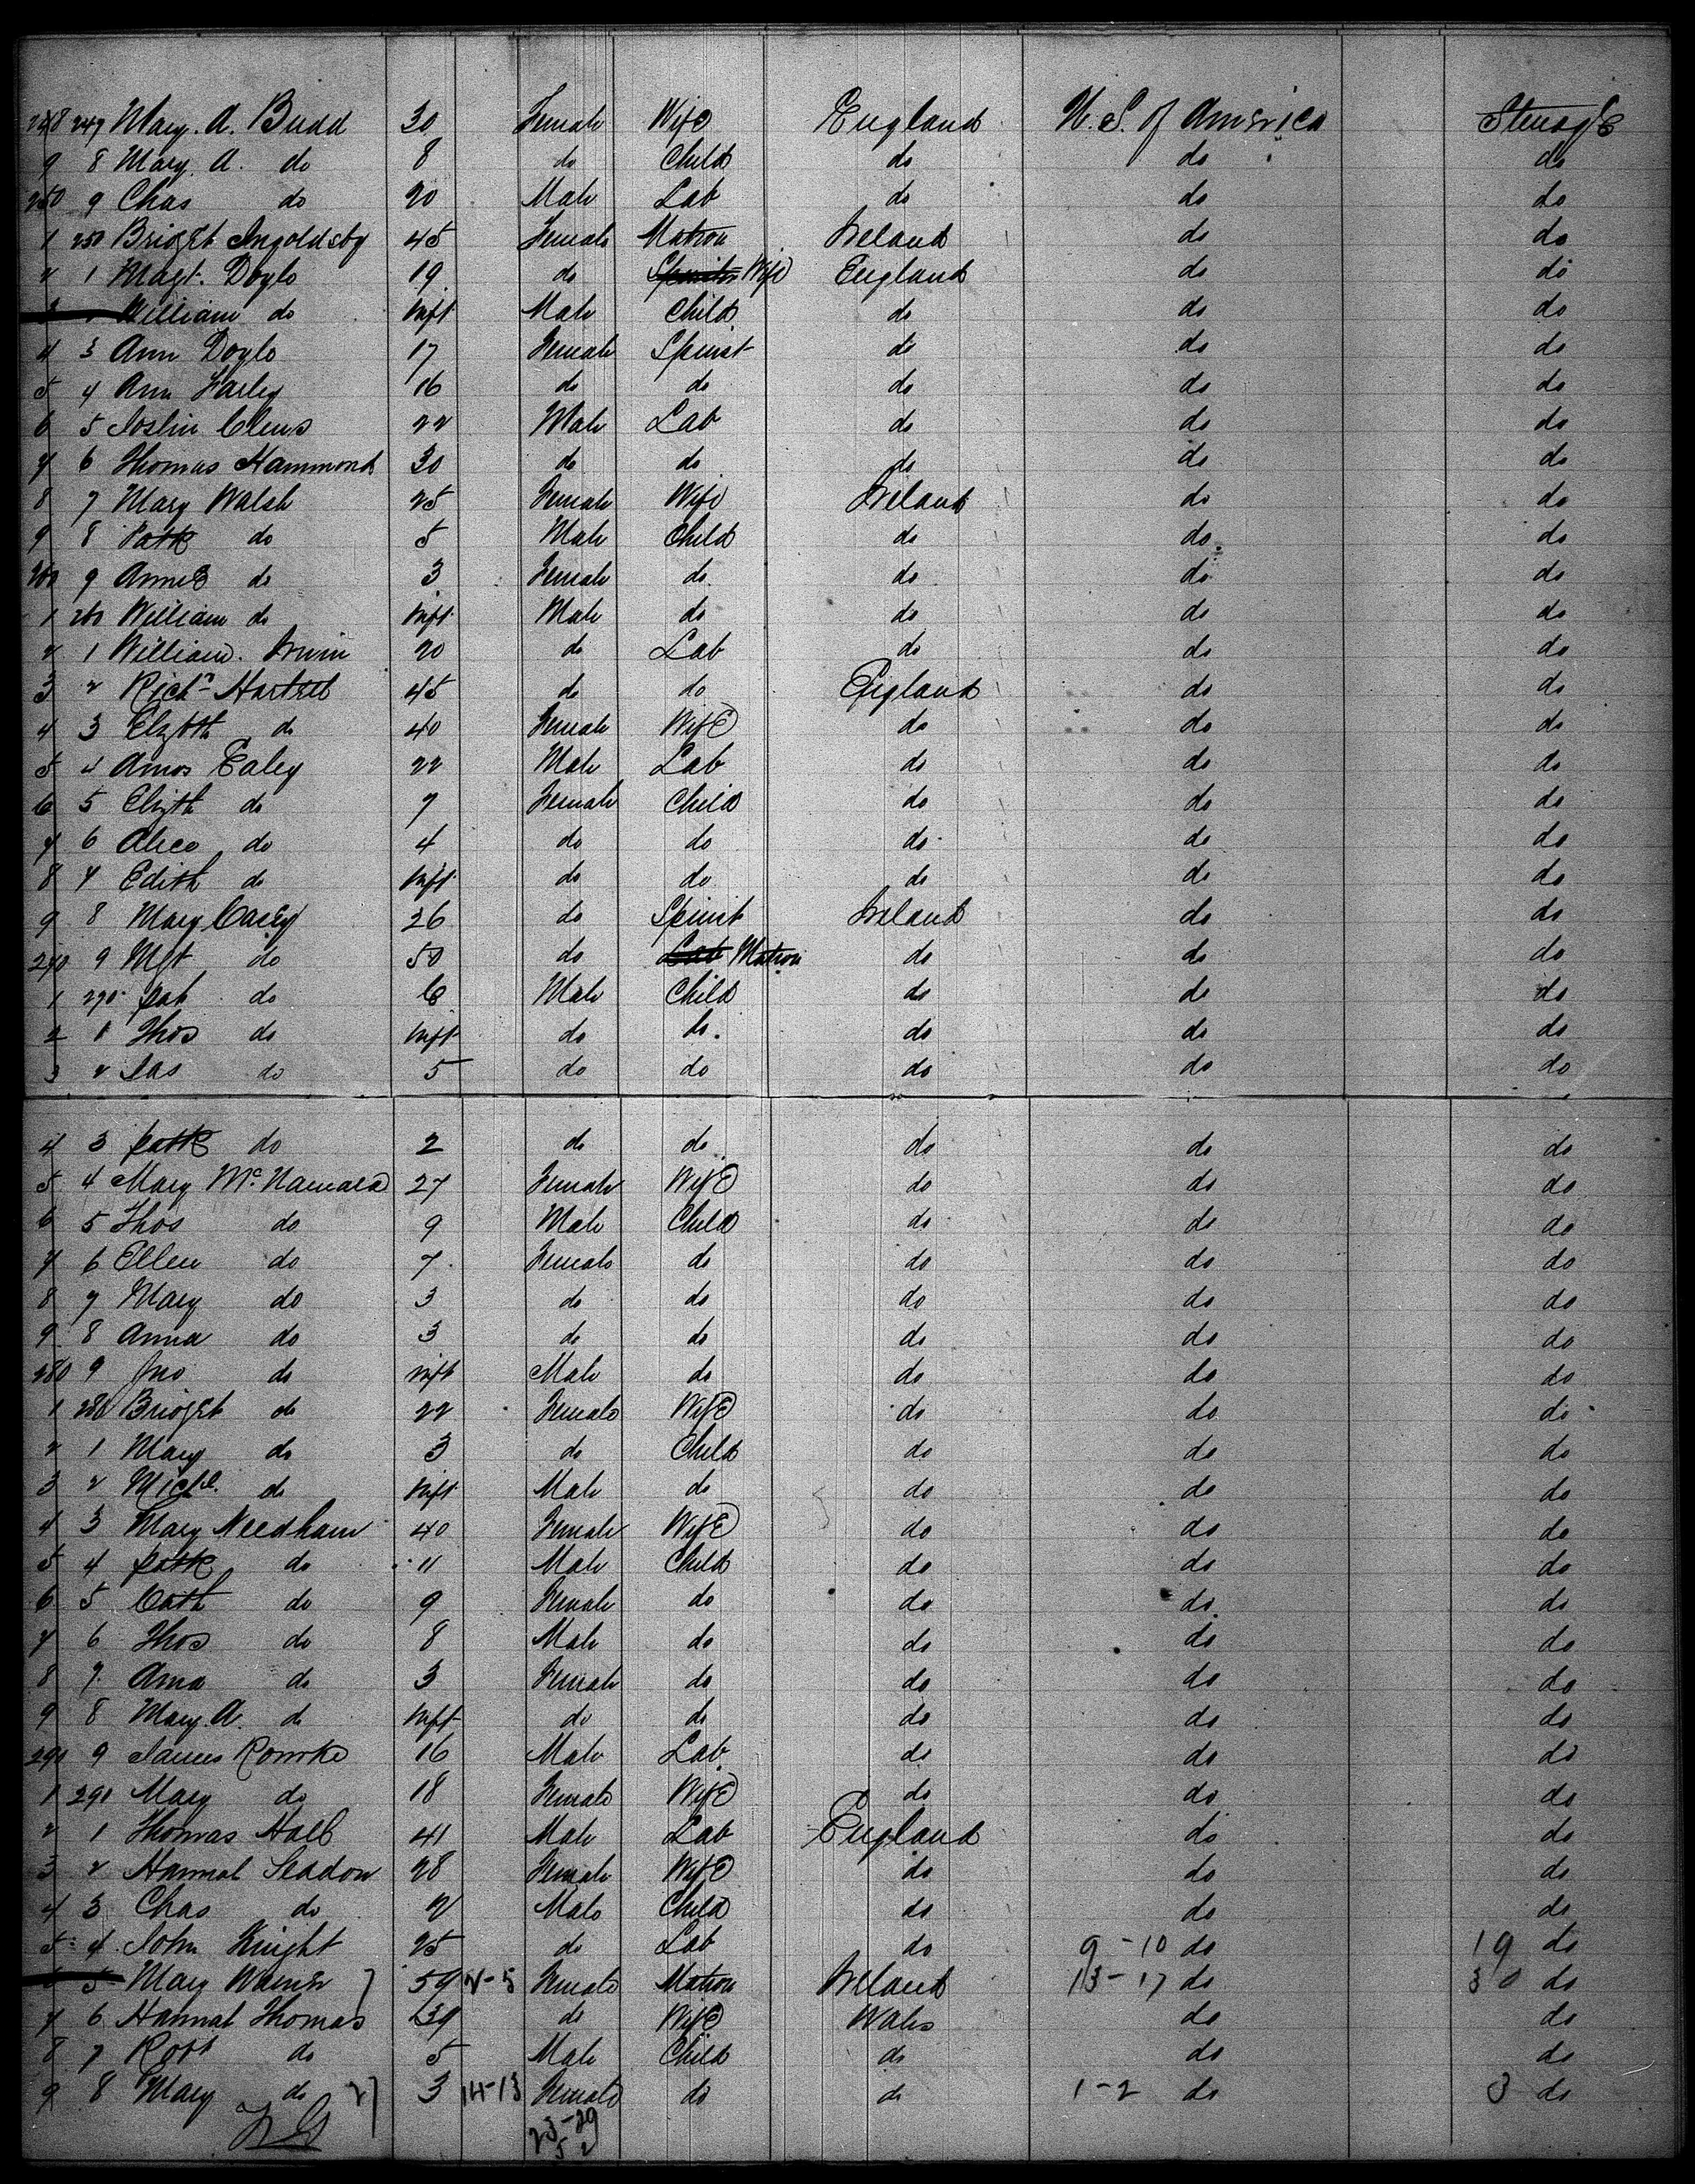 248 247 Mary. A. Budd 30 Female Wife England U. S. of America Steerage
9 8 Mary. A. do 8 do Child do do do
250 9 Chas do 20 Male Lab do do do
1 250 Bridget Ingoldsby 45 Female Matron Ireland do do
2 1 Magt. Doyle 19 do Spinster Wife England do do
3 William do Inft Male Child do do do
4 3 Ann Doyle 17 Female Spinst do do do
5 4 Ann Farley 16 do do do do do
6 5 Joslin Clews 22 Male Lab do do do
7 6 Thomas Hammond 30 do do do do do
8 7 Mary Walsh 25 Female Wife Ireland do do
9 8 Patk do 5 Male Child do do do
260 9 Annie do 3 Female do do do do
1 260 William do Inft Male do do do do
2 1 William. Irwin 20 do Lab do do do
3 2 Richd Hartell 45 do do England do do
4 3 Elizbth do 40 Female Wife do do do
5 4 Amos Ealey 22 Male Lab do do do
6 5 Elizth do 7 Female Child do do do
7 6 Alice do 4 do do do do do
8 7 Edith do Inft do do do do do
9 8 Mary Casey 26 do Spinst Ireland do do
270 9 Mgt do 50 do Lab Matron do do do
1 270 Pat do 6 Male Child do do do
2 1 Thos do Inft do do. do do do
3 2 Jas do 5 do do do do do
4 3 Patk do 2 do do do do do
5 4 Mary McNamara 27 Female Wife do do do
6 5 Thos do 9 Male Child do do do
7 6 Ellen do 7 Female do do do do
8 7 Mary do 3 do do do do do
9 8 Anna do 3 do do do do do
280 9 Jno do Inft Male do do do do
1 280 Bridget do 22 Female Wife do do do
2 1 Mary do 3 do Child do do do
3 2 Michl. do Inft Male do do do do
4 3 Mary Needham 40 Female Wife do do do
5 4 Patk do 11 Male Child do do do
6 5 Cath do 9 Female do do do do
7 6 Thos do 8 Male do do do do
8 7 Anna do 3 Female do do do do
9 8 Mary. A. do Inft do do do do do
290 9 James Rourke 16 Male Lab do do do
1 290 Mary do 18 Female Wife do do do
2 1 Thomas Hall 41 Male Lab England do do
3 2 Hannah Seddon 28 Female Wife do do do
4 3 Chas do 2 Male Child do do do
5 4 John Knight 25 do Lab do 9-10 do 19 do
6 5 Mary 59 2-5 Female Matron Ireland 13-17 do 30 do
7 6 Hannah Thomas 39 do Wife Wales do do
8 7 Robt do 5 Male Child do do do
9 8 Mary do 27 3 14-13 Female do do 1-2 do 3 do
23-29
5 2